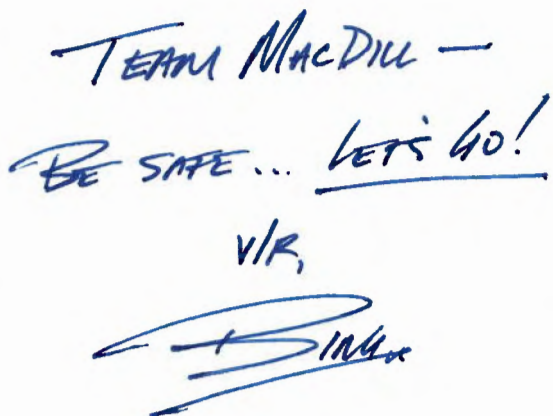 TEAM MACDILL —
BE SAFE... LET'S GO!
V/R,
BING